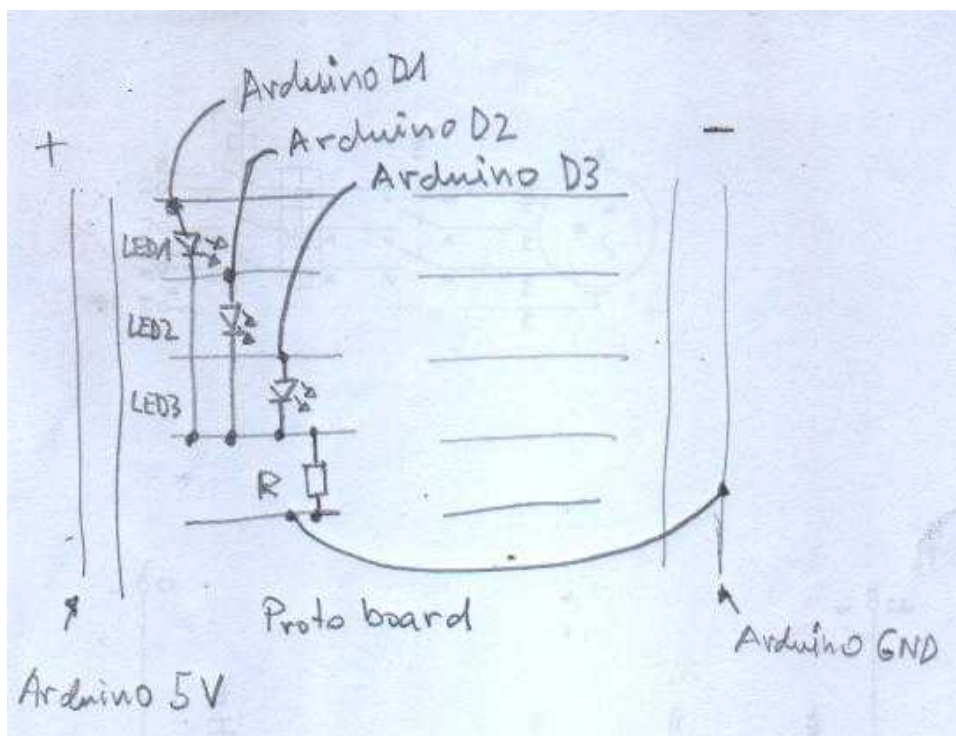 Arduino D1
Arduino D2
Arduino D3
+
-
LED1
LED2
LED3
R
Proto board
Arduino GND
Arduino 5V